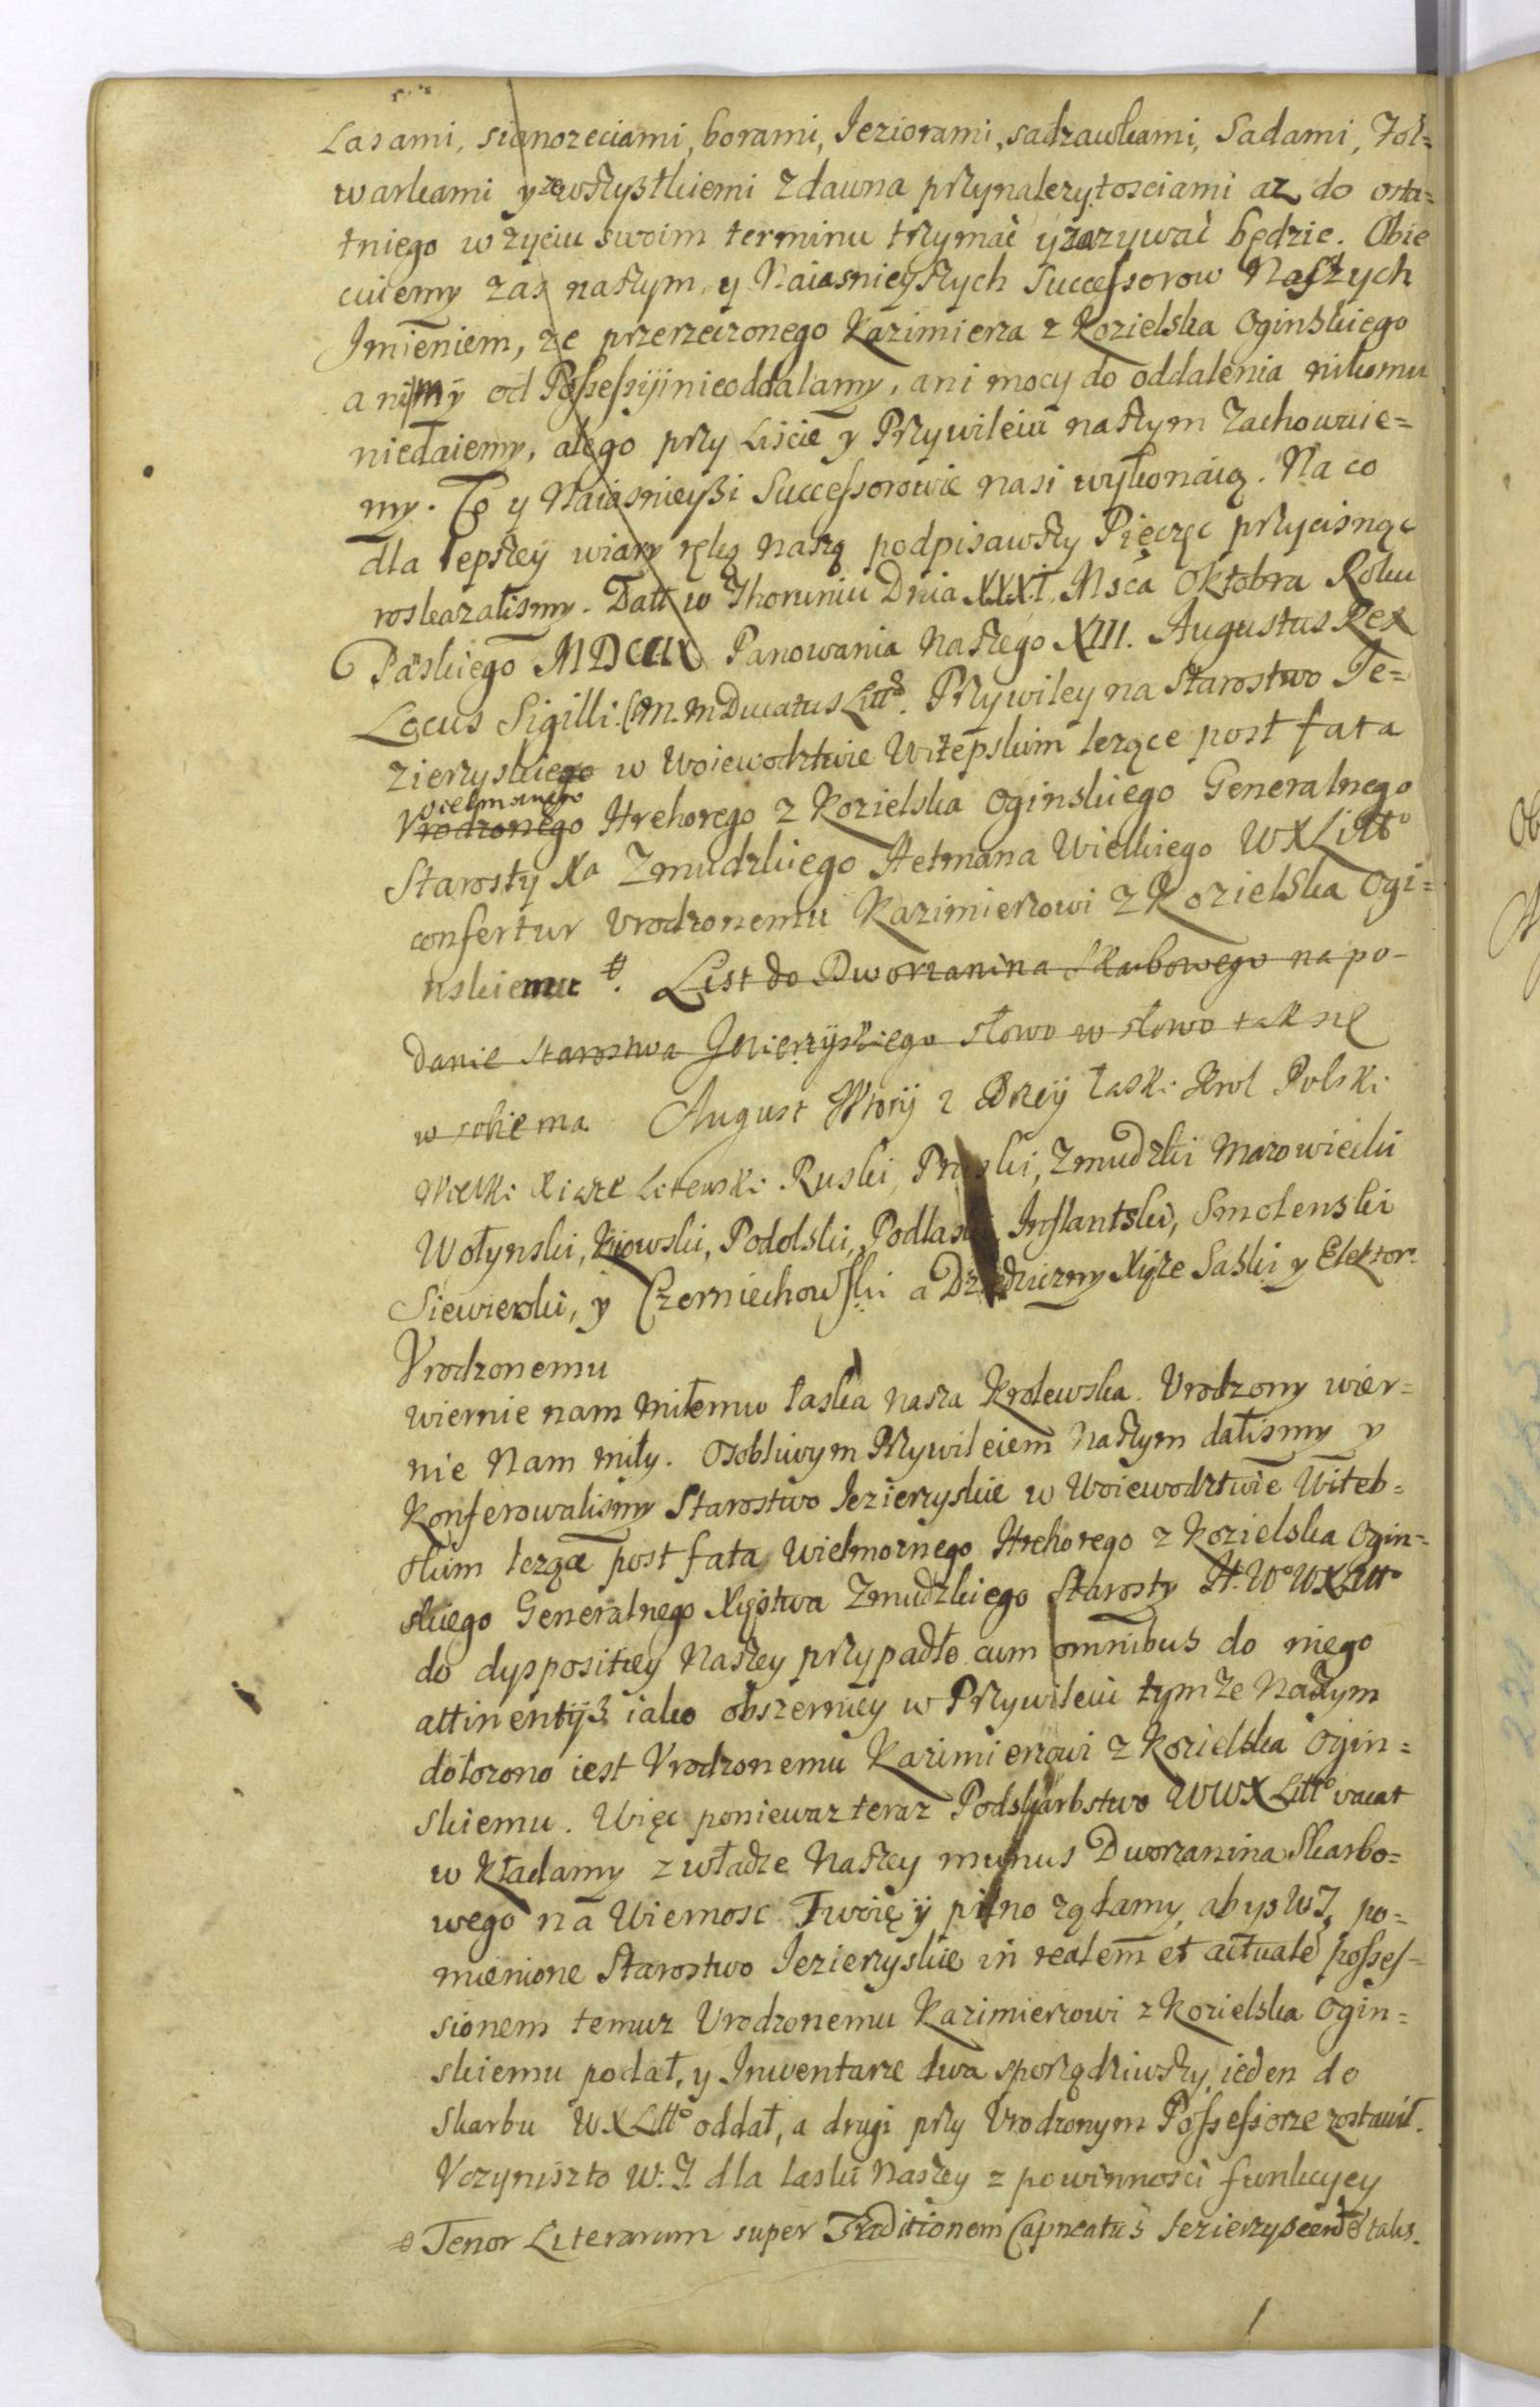 Lasami, sianozeciami, borami, Ieziorami, sadzawkami, Sadami, Fol=
warkami y ze wszystkiemi zdawna przynalezytosciami az do osta=
tniego w zyciu swoim terminu trzymać y zazywać będzie. Obie
cuiemy zas naszym y Naiasnieyszych Successorow Naszych
Imieniem, ze przerzeczonego Kazimierza z Kozielska Oginskiego
ani my od Possessyi nieoddalamy, ani mocy do oddalenia nikomu
niedaiemy, ale go przy Liscie y Przywileiu naszym zachowuie=
my. To y Naiasnieyszi Successorowie nasi wykonaią. Na co
dla lepszey wiary ręką naszą podpisawszy Pięczęc przycisnąc
roskazalismy. Datt w Thoruniu Dnia XXXI Msca Oktobra Roku
Pańskiego MDCCIX Panowania Naszego XIII. Augustus Rex
Locus Sigilli M. Ducatus Litt. Przywiley na Starostwo Ie=
zierzyskiego w Woiewodztwie Witepskim lezące post fata
Wielmoznego
Vrodzonego Hrehorego z Kozielska Oginskiego Generalnego
Starosty Xa Zmudzkiego Hetmana Wielkiego WXLitto
confertur Vrodzonemu Kazimierzowi z Kozielska Ogi=
nskiemu #. List do Dworzanina Skarbowego na po-
danie Starostwa Jezierzyskiego słowo w słowo tak się
w sobie ma. August Wtory z Bozey łaski Krol Polski
Wielki Xiąze Litewski Ruski, Pruski, Zmudzki Mazowiecki
Wołynski, Kiiowski, Podolski, Podlaski, Inflantski, Smolenski
Siewierski, y Czerniechowski a Dziedziczny Xiąze Saski y Elektor.
Vrodzonemu
wiernie nam miłemu łaska nasza Krolewska. Vrodzony wier=
nie Nam miły. Osobliwym Przywileiem Naszym dalismy y
Konferowalismy Starostwo Iezierzyskie w Woiewodztwie Witeb=
skim lezące post fata Wielmoznego Hrehorego z Kozielska Ogin=
skiego Generalnego Xięstwa Zmudzkiego Starosty H. Wo WXLitto
do dyspositiey Naszey przypadło cum omnibus do niego
attinentijs iako obszerniey w Przywileiu tymze Naszym
dołozono iest Vrodzonemu Kazimierzowi z Kozielska Ogin=
skiemu. Więc poniewaz teraz Podskarbstwo WWXLitto vacat
w kładamy z władze Naszey munus Dworzanina Skarbo=
wego na Wiernosc Twoię y pilno ządamy, abys W.T. po=
mienione Starostwo Iezierzyskie in realem et actuale posses=
sionem temuz Vrodzonemu Kazimierzowi z Kozielska Ogin=
skiemu podał, y Inwentarze dwa sporządziwszy, ieden do
Skarbu WXLitto oddał, a drugi przy Vrodzonym Possessorze zostawił.
Vczynisz to W.T. dla łaski Naszey z powinnosci funkcyey
# Tenor Literarum super Traditionem Capneatus Iezierzyscen talis.